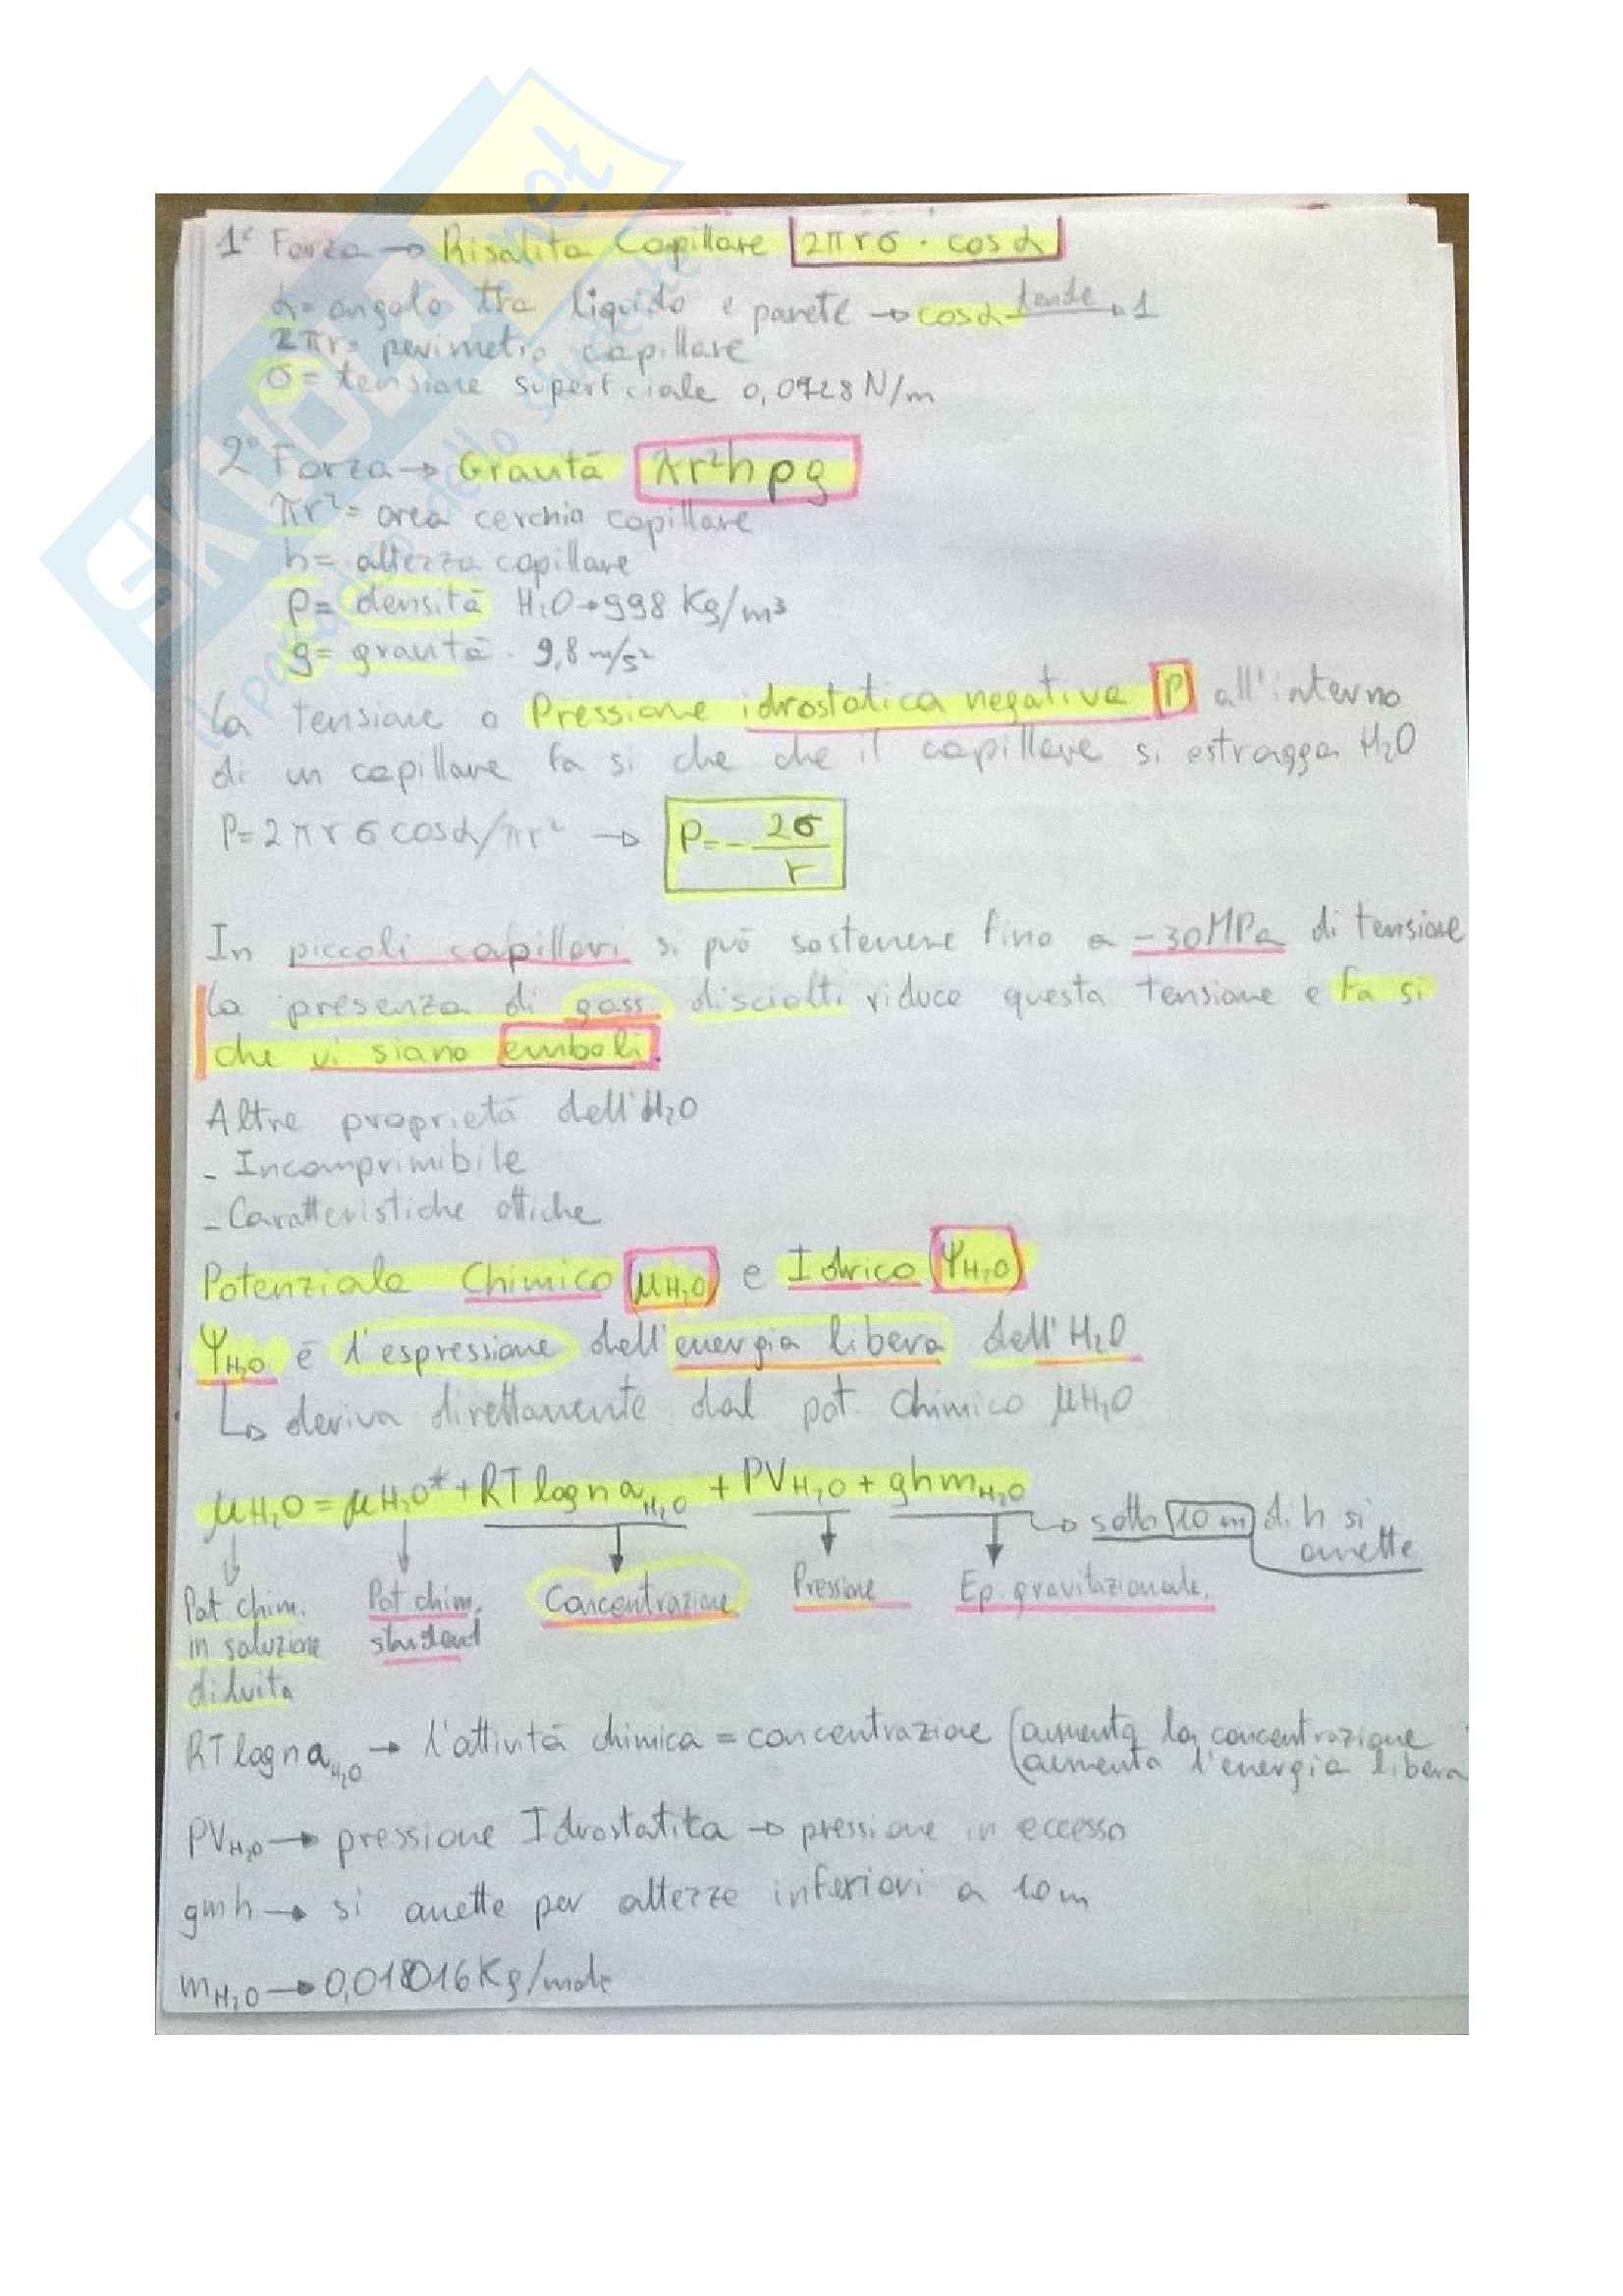 1° Forza → Risalita Capillare 2πrσ · cosα
α= angolo tra liquido e parete → cosα tende → 1
2πr= perimetro capillare
σ= tensione superficiale 0,0728 N/m
2° Forza → Gravità πr²hρg
πr²= area cerchio capillare
h= altezza capillare
ρ= densità H₂O→998 Kg/m³
g= gravità · 9,8 m/s²
La tensione o Pressione idrostatica negativa P all'interno
di un capillare fa si che che il capillare si estragga H₂O
P=2πrσcosα/πr² → P=-2σ/r
In piccoli capillari si può sostenere fino a -30MPa di tensione
La presenza di gass disciolti riduce questa tensione e fa si
che vi siano emboli.
Altre proprietà dell'H₂O
- Incomprimibile
- Caratteristiche ottiche
Potenziale Chimico μH₂O e Idrico ΨH₂O
ΨH₂O è l'espressione dell'energia libera dell'H₂O
↳ deriva direttamente dal pot. chimico μH₂O
μH₂O = μH₂O* + RT logn aH₂O + PVH₂O + ghmH₂O → sotto 10 m di h si
omette
Pot chim. in soluzione diluita
Pot chim. standard
Concentrazione
Pressione
Ep. gravitazionale.
RT logn aH₂O → l'attività chimica = concentrazione (aumenta la concentrazione
(aumenta l'energia libera
PVH₂O → pressione Idrostatika → pressione in eccesso
gmh → si omette per altezze inferiori a 10m
mH₂O → 0,018016Kg/mole
SKUOLA.net
il paradiso dello studente